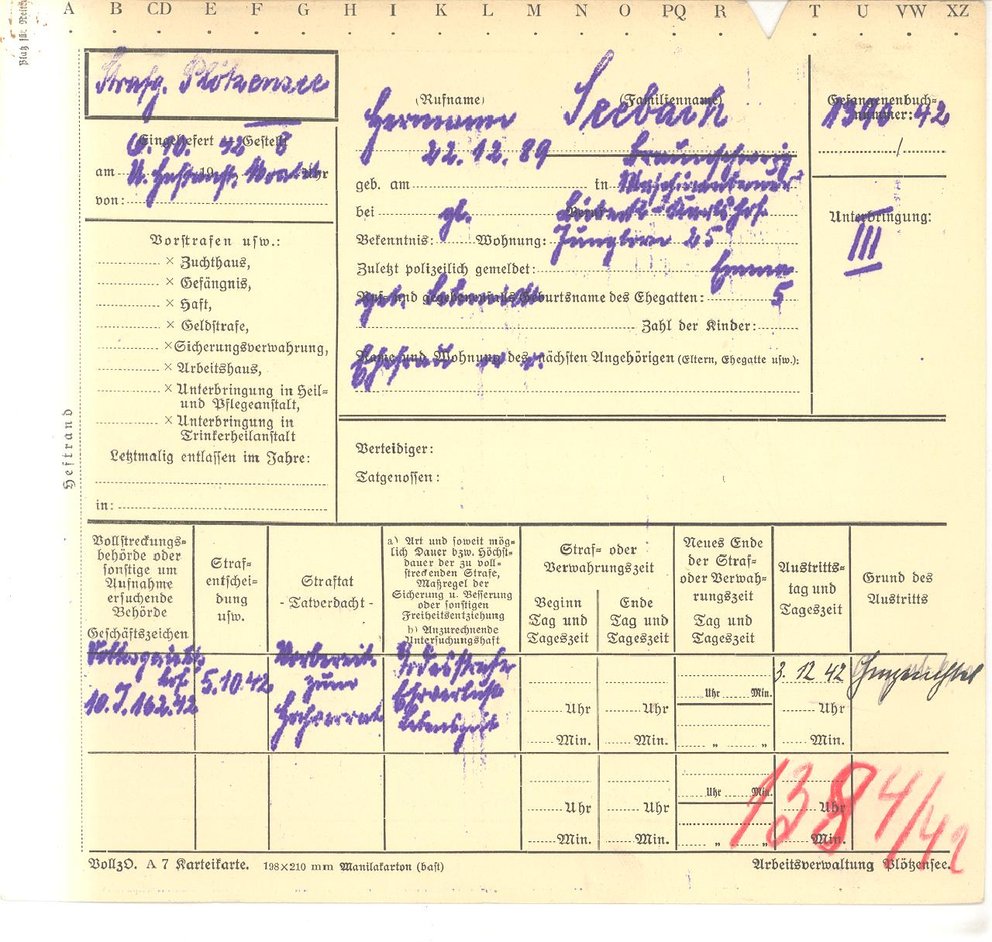 A B CD E F G H I K L M N O PQ R T U VW XZ
Strafg. Plötzensee
(Rufname) (Familienname)
Hermann Seebach
Gefangenenbuch-
nummer:
42
Eingeliefert Gestellt
am 6. 10. 42 8 Uhr
von: U. Haftanst. Moabit
22. 12. 89
geb. am in Braunschweig
bei Beruf:
gl.
Bekenntnis: Wohnung:
Jungborn 25
Zuletzt polizeilich gemeldet:
Emma
Ruf- und gegebenenfalls Geburtsname des Ehegatten:
geb.
5
Zahl der Kinder:
Name und Wohnung des nächsten Angehörigen (Eltern, Ehegatte usw.):
Ehefrau w. o.
Unterbringung:
III
Vorstrafen usw.:
× Zuchthaus,
× Gefängnis,
× Haft,
× Geldstrafe,
× Sicherungsverwahrung,
× Arbeitshaus,
× Unterbringung in Heil-
und Pflegeanstalt,
× Unterbringung in
Trinkerheilanstalt
Letztmalig entlassen im Jahre:
in:
Heftrand
Verteidiger:
Tatgenossen:
Vollstreckungs-
behörde oder
sonstige um
Aufnahme
ersuchende
Behörde
Geschäftszeichen
Straf-
entschei-
dung
usw.
Straftat
- Tatverdacht -
a) Art und soweit mög-
lich Dauer bzw. Höchst-
dauer der zu voll-
streckenden Strafe,
Maßregel der
Sicherung u. Besserung
oder sonstigen
Freiheitsentziehung
b) Anzurechnende
Untersuchungshaft
Straf- oder
Verwahrungszeit
Beginn
Tag und
Tageszeit
Ende
Tag und
Tageszeit
Neues Ende
der Straf-
oder Verwah-
rungszeit
Tag und
Tageszeit
Austritts-
tag und
Tageszeit
Grund des
Austritts
Volksgerichts-
hof
10.J.162.42
5.10.42
Vorbereit.
zum
Hochverrat
Todesstrafe
Ehrverlust
Lebenszeit
3. 12 42 Hingerichtet
Uhr Min.
Uhr Uhr Uhr
Min. Min. " " Min.
Uhr Min.
Uhr Uhr Uhr
Min. Min. " " Min.
1384/42
VollzO. A 7 Karteikarte. 198×210 mm Manilakarton (hast)
Arbeitsverwaltung Plötzensee.